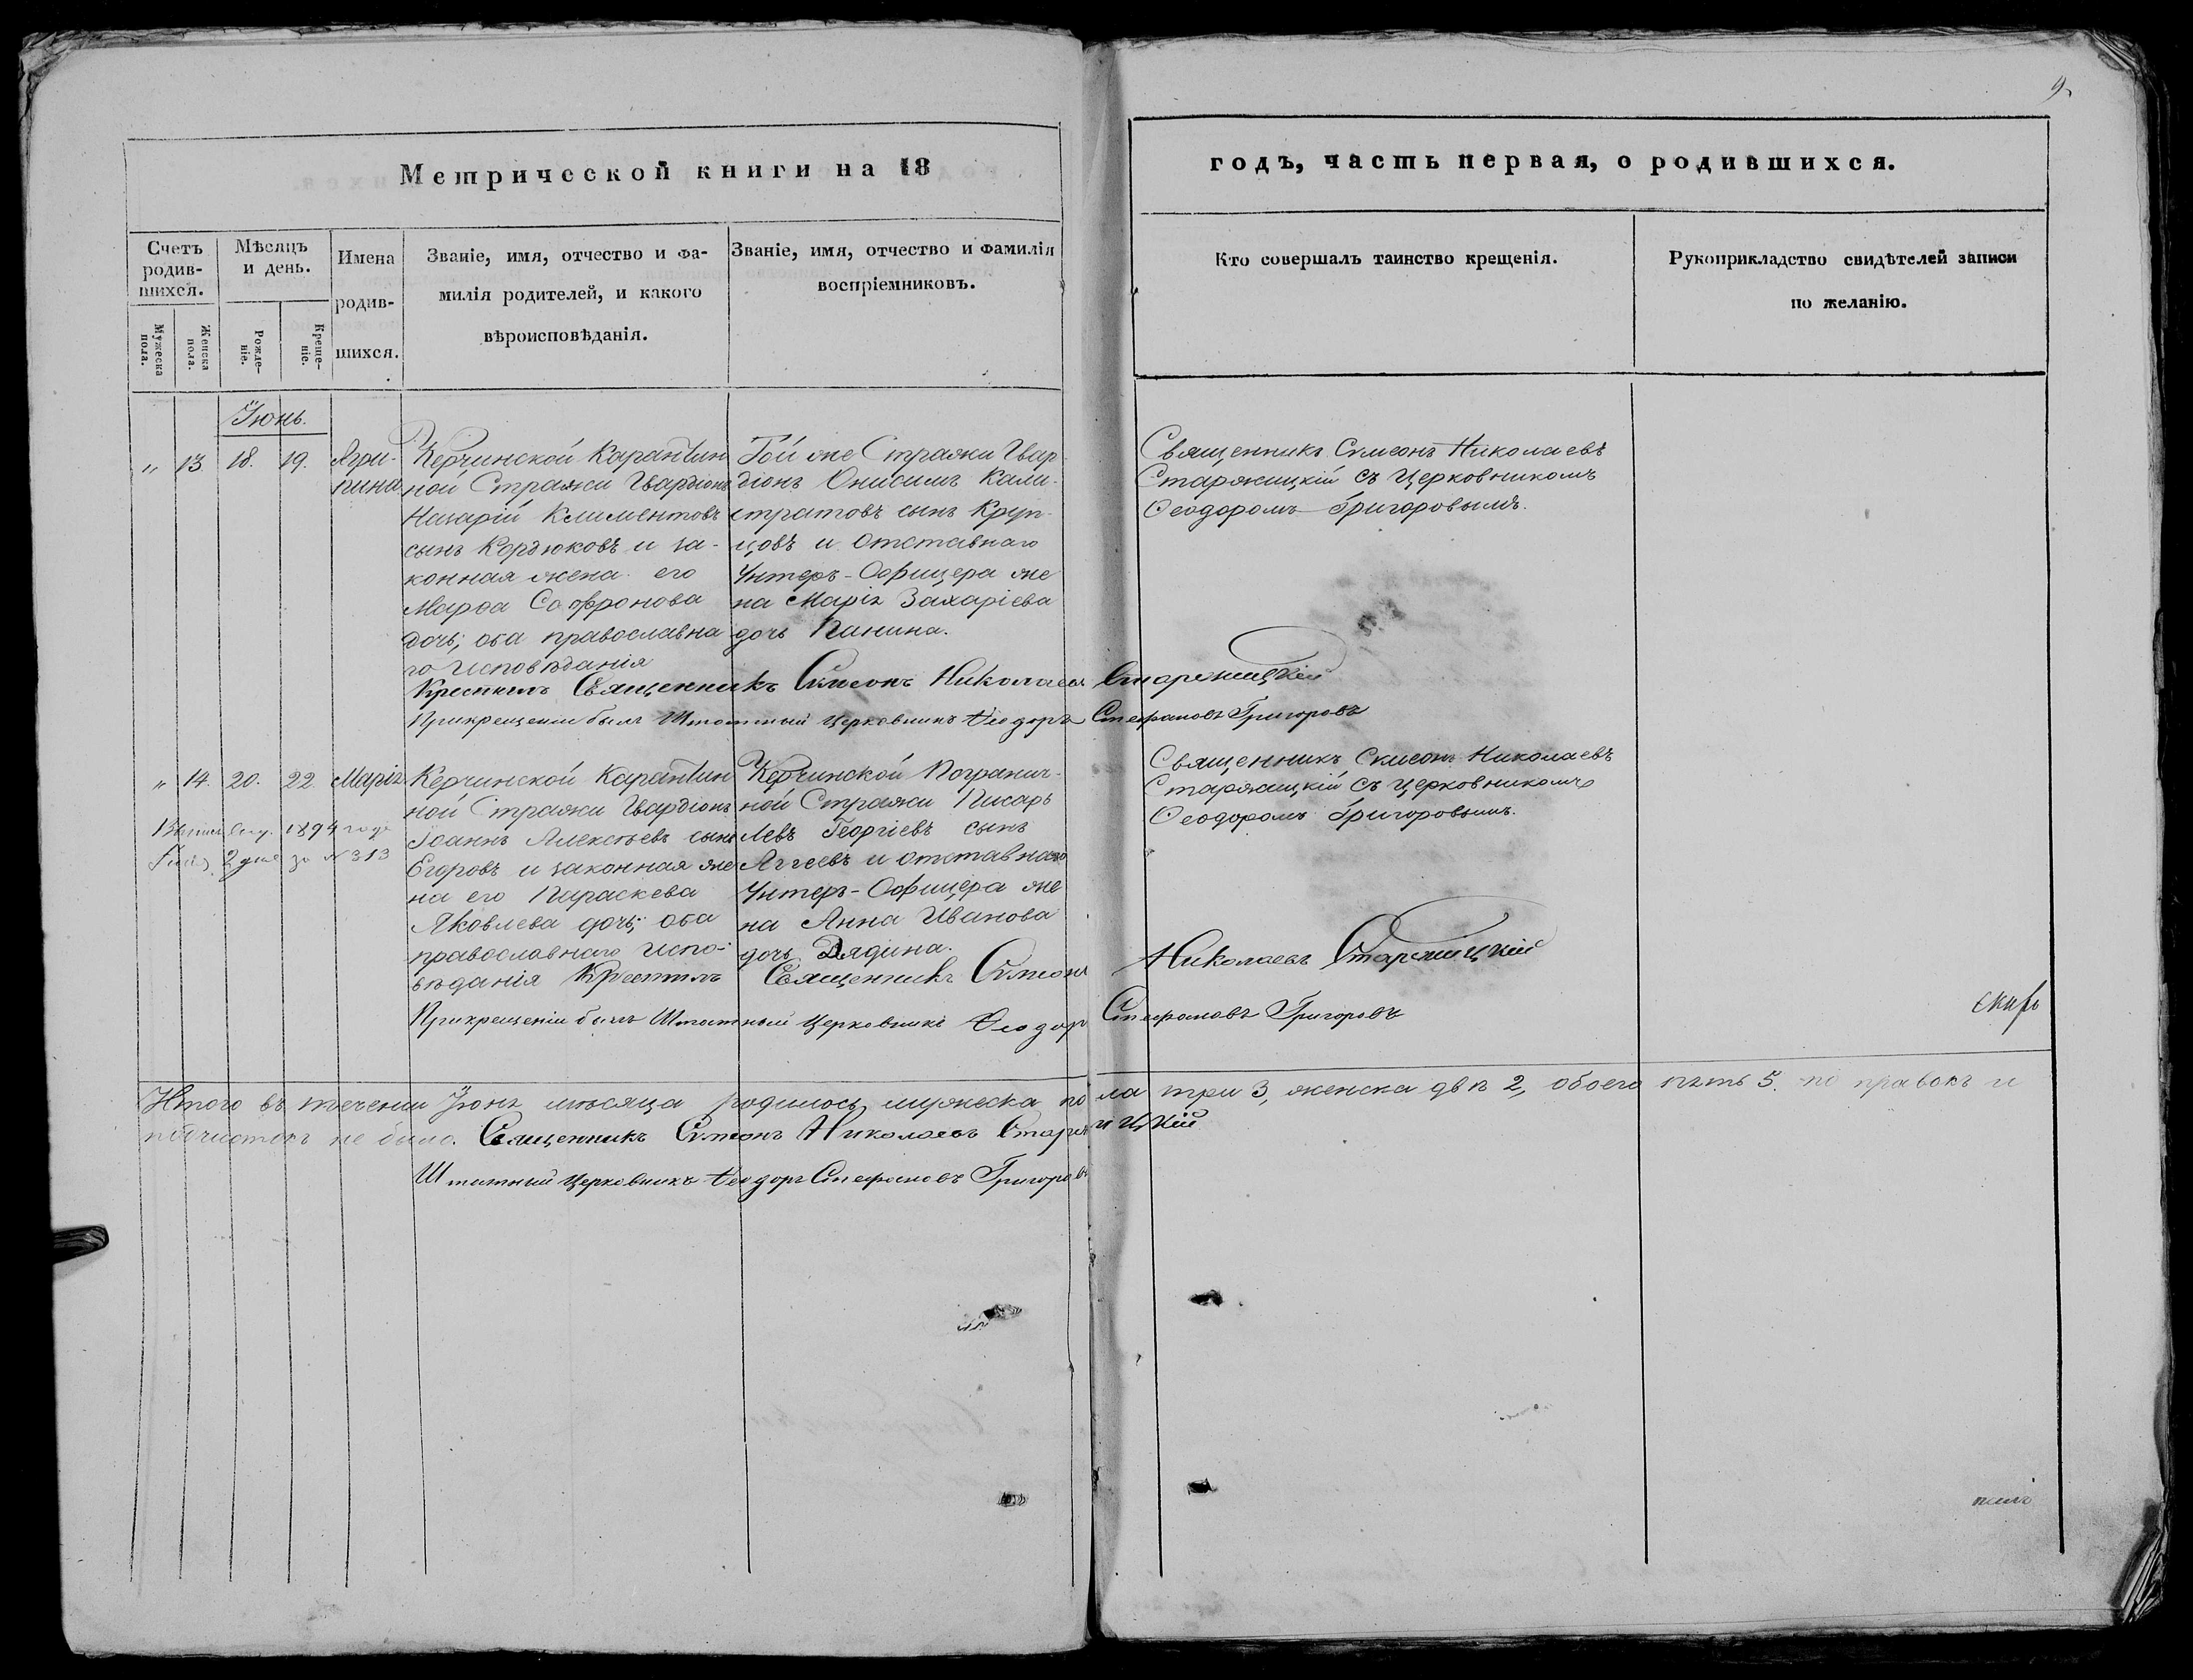 9
Метрической книги на 18
годъ, часть первая, о родившихся.
Счетъ родив-шихся.
Мужеска пола.
Женска пола.
Мѣсяцъ и день.
Рожде-ніе.
Креще-ніе.
Имена родив-шихся.
Званіе, имя, отчество и фа-
милія родителей, и какого
вѣроисповѣданія.
Званіе, имя, отчество и фамилія
воспріемниковъ.
Кто совершалъ таинство крещенія.
Рукоприкладство свидѣтелей записи
по желанію.
Іюнь.
" 13. 18. 19. Агри-
пина
Керчинской Карантин
ной Стражи Гвардіонъ
Назарій Климентовъ
сынъ Кордюковъ и за-
конная жена его
Марѳа Софронова
дочь; оба православна
го исповѣданія
Той же Стражи Гвар
діонъ Онисимъ Кали-
стратовъ сынъ Круп-
цовъ и Отставнаго
Унтеръ-Офицера же
на Марія Захаріева
дочь Панина.
Священникъ Симеонъ Николаевъ
Старжицкій съ Церковникомъ
Ѳеодоромъ Григоровымъ.
Крестилъ Священникъ Симеонъ Николаевъ Старжицкій
При крещеніи былъ Штатный Церковникъ Ѳеодоръ Стефановъ Григоровъ
" 14. 20. 22. Марія
1894 года
2 дня за № 313
Керчинской Карантин
ной Стражи Гвардіонъ
Іоаннъ Алексѣевъ сынъ
Егоровъ и законная же
на его Параскева
Яковлева дочь; оба
православнаго испо-
вѣданія
Керчинской Погранич-
ной Стражи Писарь
Левъ Георгіевъ сынъ
Аггеевъ и отставнаго
Унтеръ-Офицера же
на Анна Иванова
дочь Дядина.
Священникъ Симеонъ Николаевъ
Старжицкій съ Церковникомъ
Ѳеодоромъ Григоровымъ.
Крестилъ Священникъ Симеонъ Николаевъ Старжицкій
При крещеніи былъ Штатный Церковникъ Ѳеодоръ Стефановъ Григоровъ
скрѣ
Итого въ теченіи Іюня мѣсяца родилось мужеска пола три 3, женска двѣ 2, обоего пять 5. поправокъ и
подчистокъ не было. Священникъ Симеонъ Николаевъ Старжицкій
Штатный Церковникъ Ѳеодоръ Стефановъ Григоровъ
пилъ